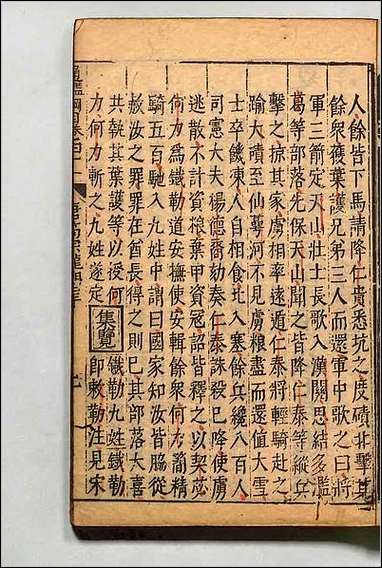 人餘皆下馬請降仁貴悉坑之度磧北擊其
餘衆獲葉護兄弟三人而還軍中歌之曰將
軍三箭定天山壯士長歌入漢關思結多濫
葛等部落先保天山聞之皆降仁泰等縱兵
擊之掠其家虜相率遠遁仁泰將輕騎赴之
踰大磧至仙萼河不見虜糧盡而還值大雪
士卒饑凍人自相食比入塞餘兵纔八百人
司憲大夫楊德裔劾奏仁泰誅殺已降使虜
逃散不計資糧棄甲資寇詔皆釋之以契苾
何力爲鐵勒道安撫使安輯餘衆何力簡精
騎五百馳入九姓中謂曰國家知汝皆脇從
赦汝之罪罪在酋長得之則已其部落大喜
共執其葉護等以授何
力何力斬之九姓遂定
集覽
鐵勒九姓鐵勒
即敕勒注見宋